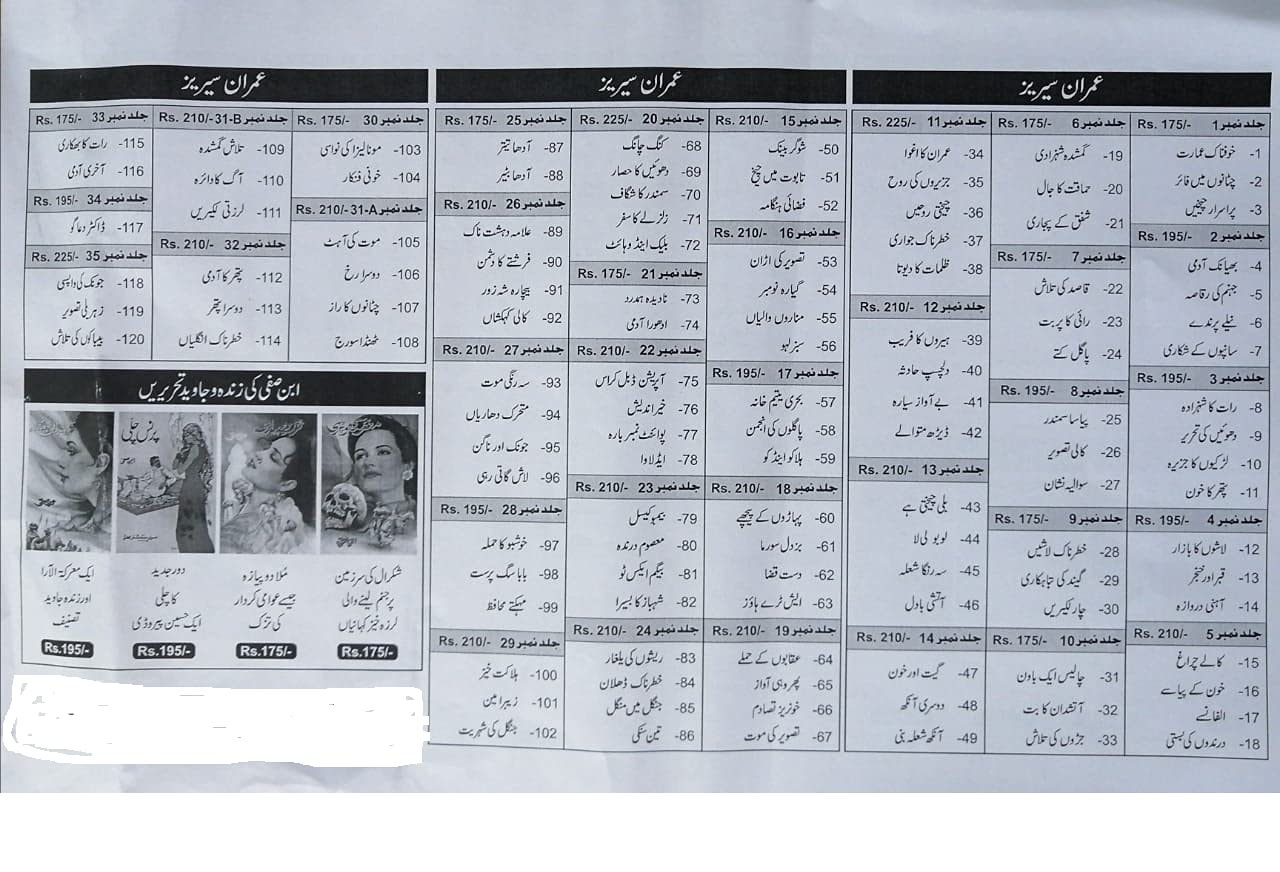 عمران سیریز
جلد نمبر 1 Rs. 175/-
1- خوفناک عمارت
2- چٹانوں میں فائر
3- پراسرار چیخیں
جلد نمبر 2 Rs. 195/-
4- بھیانک آدمی
5- جہنم کی رقاصہ
6- نیلے پرندے
7- سانپوں کے شکاری
جلد نمبر 3 Rs. 195/-
8- رات کا شہزادہ
9- دھوئیں کی تحریر
10- لڑکیوں کا جزیرہ
11- پتھر کا خون
جلد نمبر 4 Rs. 195/-
12- لاشوں کا بازار
13- قبر اور خنجر
14- آہنی دروازہ
جلد نمبر 5 Rs. 210/-
15- کالے چراغ
16- خون کے پیاسے
17- الفانسے
18- درندوں کی بستی
جلد نمبر 6 Rs. 175/-
19- گمشدہ شہزادی
20- حماقت کا جال
21- شفق کے پجاری
جلد نمبر 7 Rs. 175/-
22- قاصد کی تلاش
23- رائی کا پربت
24- پاگل کتے
جلد نمبر 8 Rs. 195/-
25- پیاسا سمندر
26- کالی تصویر
27- سوالیہ نشان
جلد نمبر 9 Rs. 175/-
28- خطرناک لاشیں
29- گیند کی تباہ کاری
30- چار لکیریں
جلد نمبر 10 Rs. 175/-
31- چالیس ایک باون
32- آتشدان کا بت
33- جڑوں کی تلاش
جلد نمبر 11 Rs. 225/-
34- عمران کا اغوا
35- جزیروں کی روح
36- چیختی روحیں
37- خطرناک جواری
38- ظلمات کا دیوتا
جلد نمبر 12 Rs. 210/-
39- ہیروں کا فریب
40- دلچسپ حادثہ
41- بے آواز سیارہ
42- ڈیڑھ متوالے
جلد نمبر 13 Rs. 210/-
43- بلی چیختی ہے
44- لوبو لی لا
45- سہ رنگا شعلہ
46- آتشی بادل
جلد نمبر 14 Rs. 210/-
47- گیت اور خون
48- دوسری آنکھ
49- آنکھ شعلہ بنی
عمران سیریز
جلد نمبر 15 Rs. 210/-
50- شوگر بینک
51- تابوت میں چیخ
52- فضائی ہنگامہ
جلد نمبر 16 Rs. 210/-
53- تصویر کی اڑان
54- گیارہ نومبر
55- مناروں والیاں
56- سبز لہو
جلد نمبر 17 Rs. 195/-
57- بحری یتیم خانہ
58- پاگلوں کی انجمن
59- ہلاکو اینڈ کو
جلد نمبر 18 Rs. 210/-
60- پہاڑوں کے پیچھے
61- بزدل سورما
62- دست قضا
63- ایش ٹرے ہاؤز
جلد نمبر 19 Rs. 210/-
64- عقابوں کے حملے
65- پھر وہی آواز
66- خونریز تصادم
67- تصویر کی موت
جلد نمبر 20 Rs. 225/-
68- کنگ چانگ
69- دھوئیں کا حصار
70- سمندر کا شگاف
71- زلزلے کا سفر
72- بلیک اینڈ وہائٹ
جلد نمبر 21 Rs. 175/-
73- نادیدہ ہمدرد
74- ادھورا آدمی
جلد نمبر 22 Rs. 210/-
75- آپریشن ڈبل کراس
76- خیر اندیش
77- پوائنٹ نمبر بارہ
78- ایڈلاوا
جلد نمبر 23 Rs. 210/-
79- بیمبو کیسل
80- معصوم درندہ
81- بیگم ایکس ٹو
82- شہباز کا بسیرا
جلد نمبر 24 Rs. 210/-
83- ریشوں کی یلغار
84- خطرناک ڈھلان
85- جنگل میں منگل
86- تین سنکی
جلد نمبر 25 Rs. 175/-
87- آدھا تیتر
88- آدھا بٹیر
جلد نمبر 26 Rs. 210/-
89- علامہ دہشت ناک
90- فرشتے کا دشمن
91- بیچارہ شہ زور
92- کالی کہکشاں
جلد نمبر 27 Rs. 210/-
93- سہ رنگی موت
94- متحرک دھاریاں
95- جونک اور ناگن
96- لاش گاتی رہی
جلد نمبر 28 Rs. 195/-
97- خوشبو کا حملہ
98- بابا سگ پرست
99- مہکتے محافظ
جلد نمبر 29 Rs. 210/-
100- ہلاکت خیز
101- زیبرا مین
102- جنگل کی شہریت
عمران سیریز
جلد نمبر 30 Rs. 175/-
103- مونالیزا کی نواسی
104- خونی فنکار
جلد نمبر 31-A Rs. 210/-
105- موت کی آہٹ
106- دوسرا رخ
107- چٹانوں کا راز
108- ٹھنڈا سورج
جلد نمبر 31-B Rs. 210/-
109- تلاش گمشدہ
110- آگ کا دائرہ
111- لرزتی لکیریں
جلد نمبر 32 Rs. 210/-
112- پتھر کا آدمی
113- دوسرا پتھر
114- خطرناک انگلیاں
جلد نمبر 33 Rs. 175/-
115- رات کا بھکاری
116- آخری آدمی
جلد نمبر 34 Rs. 195/-
117- ڈاکٹر دعاگو
جلد نمبر 35 Rs. 225/-
118- جونک کی واپسی
119- زہریلی تصویر
120- بیباکوں کی تلاش
ابن صفی کی زندہ و جاوید تحریریں
پرنس چلی
شکرال کی سرزمین
پر جنم لینے والی
لرزہ خیز کہانیاں
Rs.175/-
مُلا دو پیازہ
جیسے عوامی کردار
کی تزک
Rs.175/-
دور جدید
کا چلی
ایک حسین پیروڈی
Rs.195/-
ایک معرکۃ الآرا
اور زندہ جاوید
تصنیف
Rs.195/-